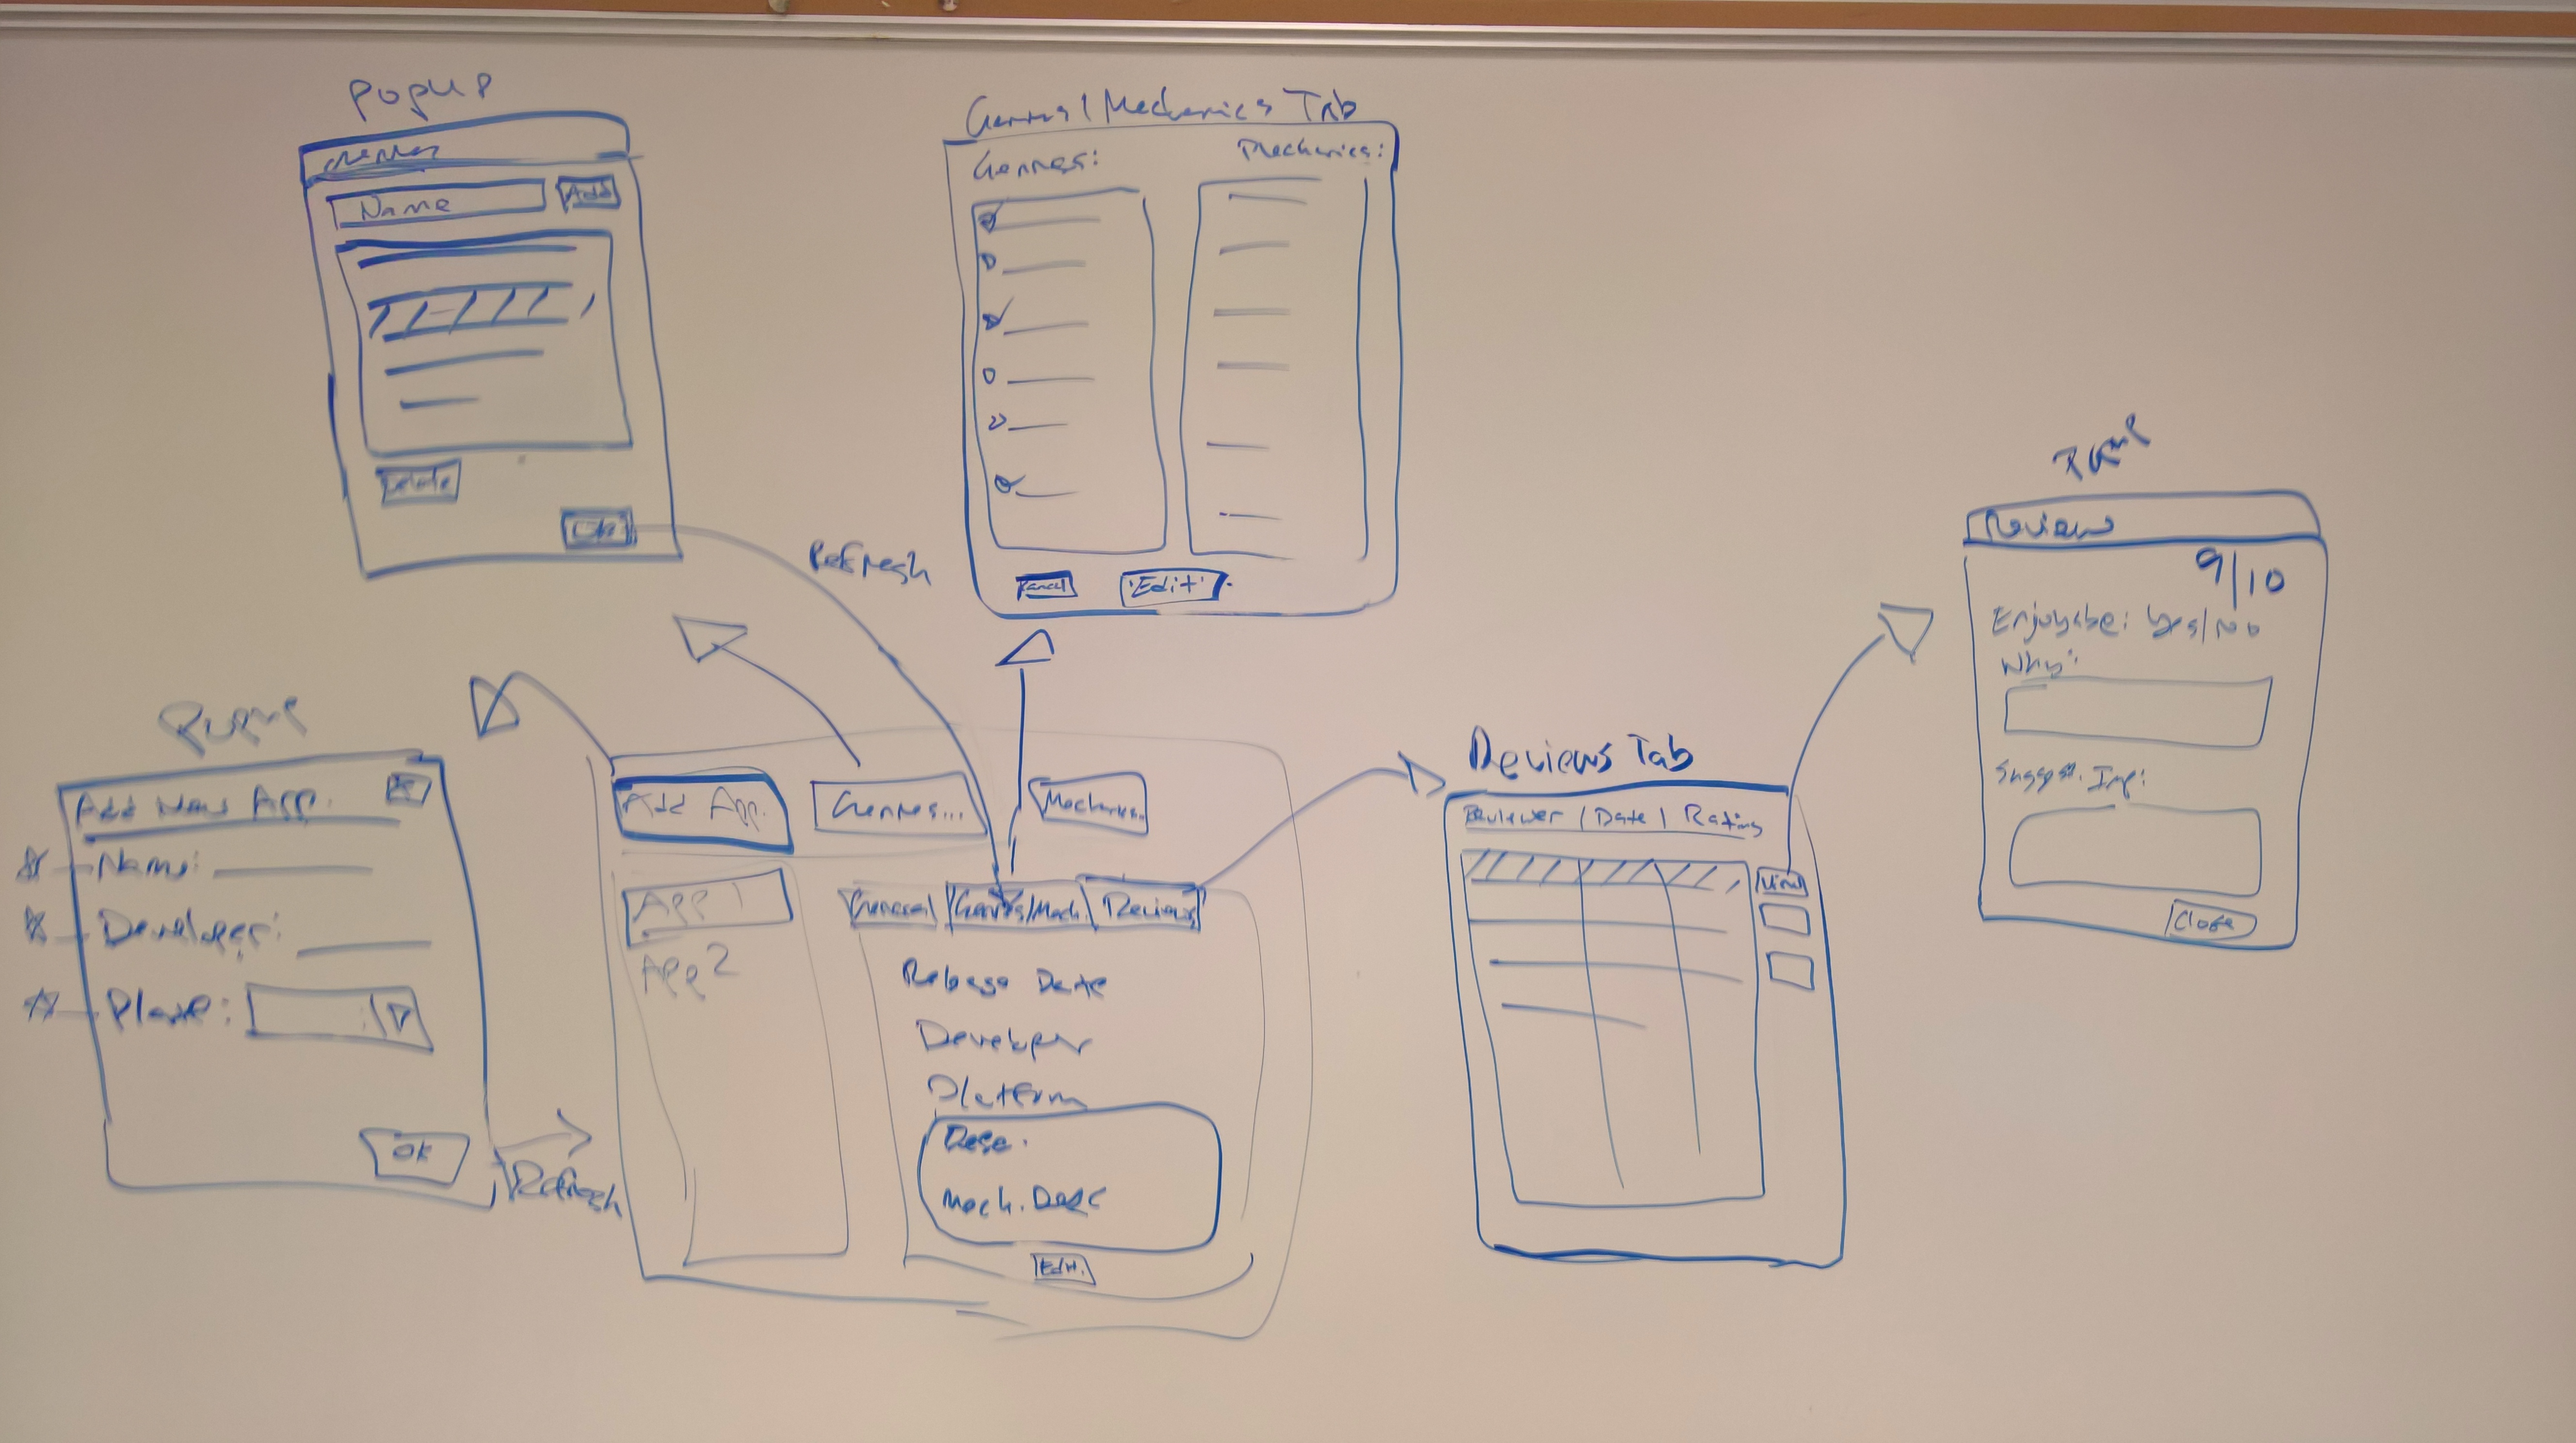 Popup
Genres
Name
Add
Delete
OK
Refresh
Genres/Mechanics Tab
Genres:
Mechanics:
Cancel
Edit
Popup
Add New App.
X
Name:
Developer:
Platf:
OK
Refresh
Add App.
Genres...
Mechanics..
App 1
App 2
General
Genres/Mech.
Reviews
Release Date
Developer
Platform
Desc.
Mech. Desc
Edit.
Reviews Tab
Reviewer / Date / Rating
View
Popup
Review
9/10
Enjoyable: Yes/No
Why:
Suggest. Imp:
Close